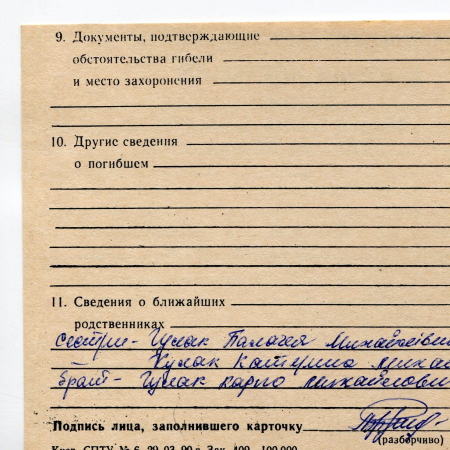 9. Документы, подтверждающие
обстоятельства гибели
и место захоронения
10. Другие сведения
о погибшем
11. Сведения о ближайших
родственниках
Сестри - Гулак Палагея Михайлівн
- Гулак Катерина Михай
брат - Гулак Карпо Михайлови
Подпись лица, заполнившего карточку
(разборчиво)
Кзар. СПТУ № 6. 29.03.90 г. Зак. 409 - 100.000